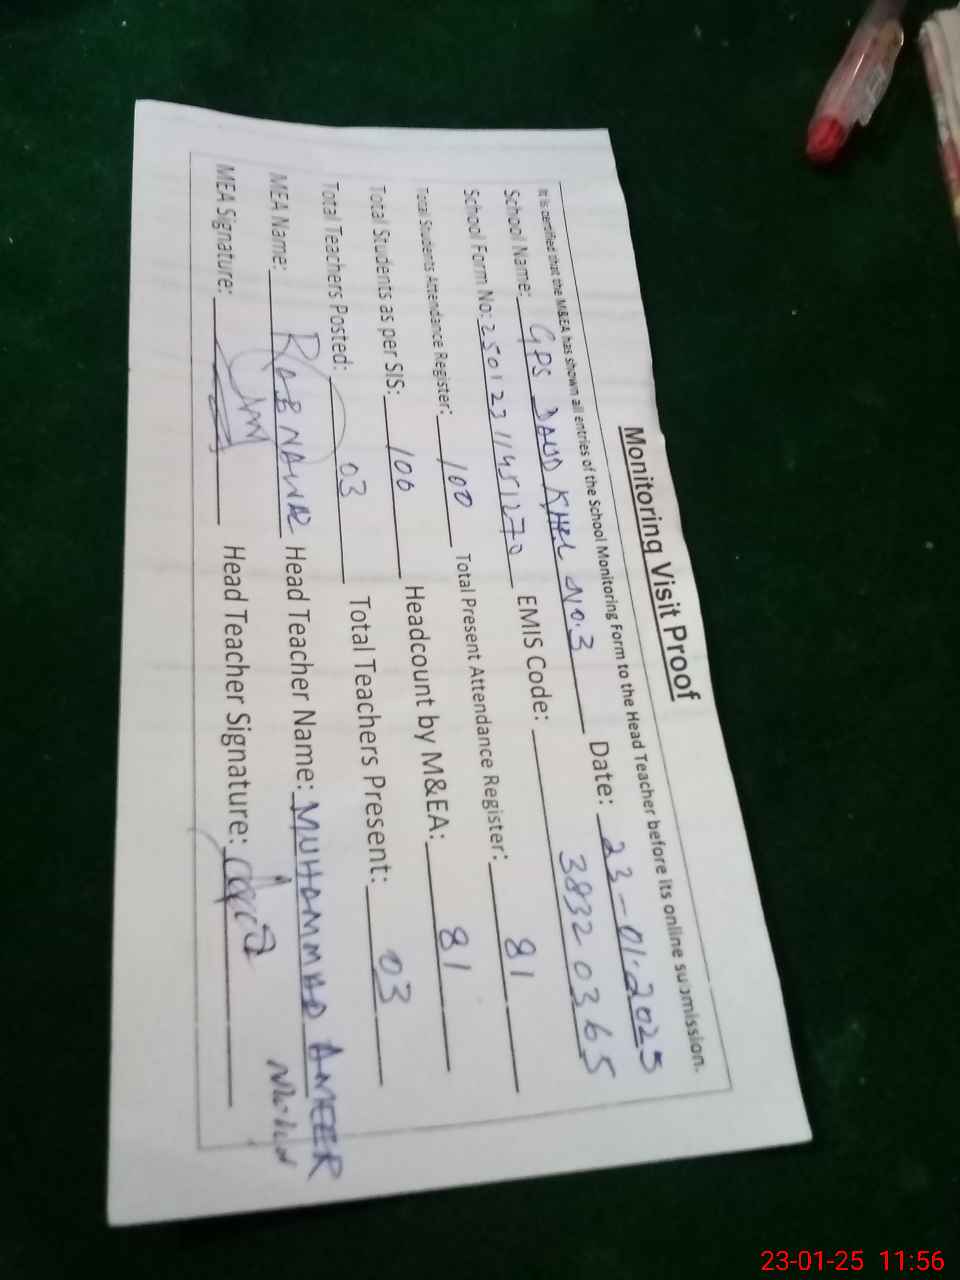 Monitoring Visit Proof
It is certified that the M&EA has shown all entries of the School Monitoring Form to the Head Teacher before its online submission.
School Name: GPS DAUD KHEL NO.3 Date: 23-01-2025
School Form No: 25012311451270 EMIS Code: 38320365
Total Students Attendance Register: 100 Total Present Attendance Register: 81
Total Students as per SIS: 100 Headcount by M&EA: 81
Total Teachers Posted: 03 Total Teachers Present: 03
MEA Name: RABNAWAZ Head Teacher Name: MUHAMMAD AMEER
MEA Signature: Head Teacher Signature:
23-01-25 11:56